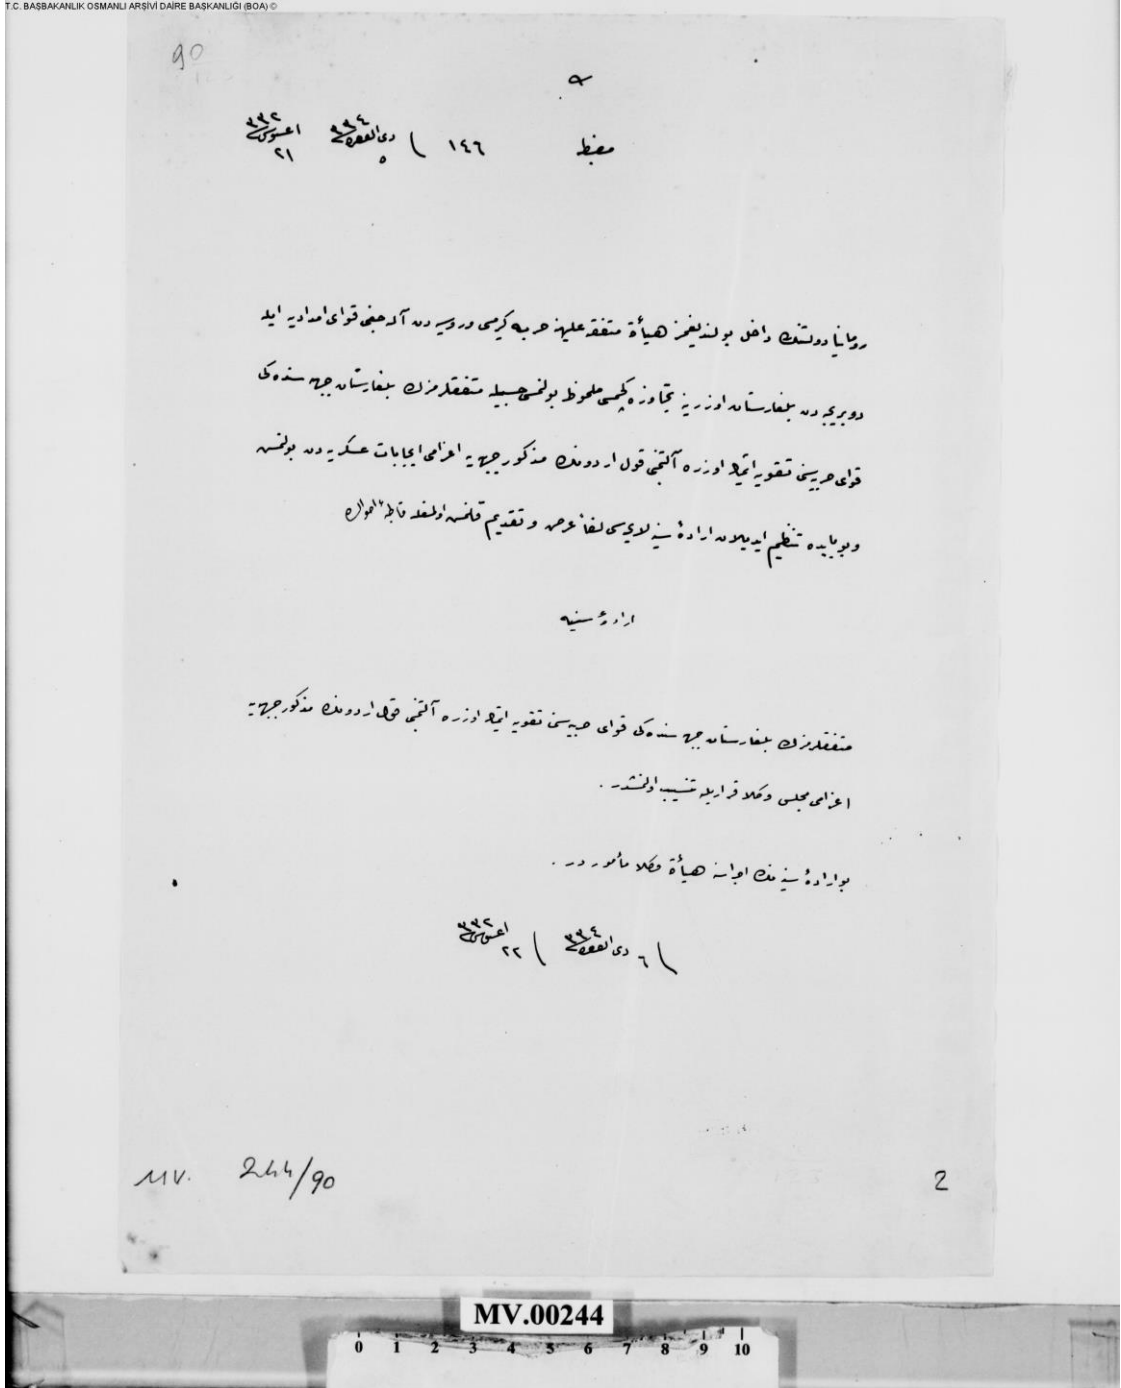 T.C. BAŞBAKANLIK OSMANLI ARŞİVİ DAİRE BAŞKANLIĞI (BOA) ©
90
مضبط ١٤٦ ٥ ذى القعده ٣٣٤ ٢١ اغستوس ٣٣٢
رومانيا دولتنك داخل بولنديغمز هيأة متفقه عليهنه حربه كيرمسى و روسيه دن آله جغى قواى امداديه ايله
دوبريجه دن بلغارستان اوزرينه تجاوزه كچمسى ملحوظ بولنمسى حسبيله متفقلرمزك بلغارستان جبهه سنده كى
قواى حربيه سنى تقويه ايتمك اوزره آلتنجى قول اردونك مذكور جبهه يه اعزامى ايجابات عسكريه دن بولنمش
و بو بابده تنظيم ايديلان ارادۀ سنيه لايحه سى لفاً عرض و تقديم قلنمش اولمغله قاطبۀ احوالده
ارادۀ سنيه
متفقلرمزك بلغارستان جبهه سنده كى قواى حربيه سنى تقويه ايتمك اوزره آلتنجى قول اردونك مذكور جبهه يه
اعزامى مجلس وكلا قراريله تنسيب اولنمشدر .
بو ارادۀ سنيه نك اجراسنه هيأة وكلا مأموردر .
٦ ذى القعده ٣٣٤ ٢٢ اغستوس ٣٣٢
MV. 244/90
2
MV.00244
0 1 2 3 4 5 6 7 8 9 10